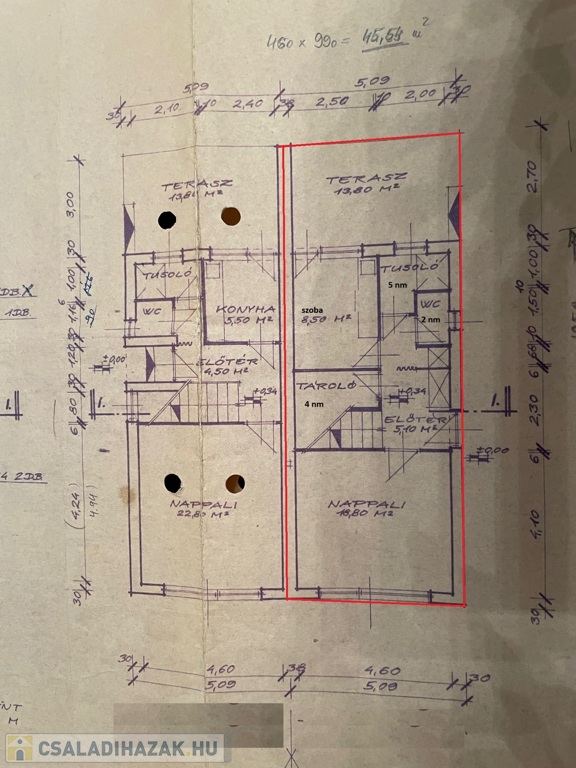 460 x 990 = 45,54 m²
5,09 5,09
30 2,10 10 2,40 38 2,50 10 2,00 30
TERASZ
13,80 M²
TERASZ
13,80 M²
3,00
2,70
TUSOLÓ
TUSOLÓ
5 nm
WC
WC
2 nm
KONYHA
5,50 M²
szoba
8,50 M²
DB X
1 DB
ELŐTÉR
4,50 M²
±0,00
+0,34
TÁROLÓ
4 nm
+0,34
ELŐTÉR
5,10 M²
±0,00
I.
I.
I.
30 1,00 1,16 1,20 30 30 80 6
30 1,00 1,50 10 60 6 2,30 6
4 2DB
(4,24)
4,94
4,10
NAPPALI
22,80 M²
NAPPALI
18,80 M²
30
30
30 4,60 38 4,60 30
5,09 5,09
INT
M
CSALADIHAZAK.HU